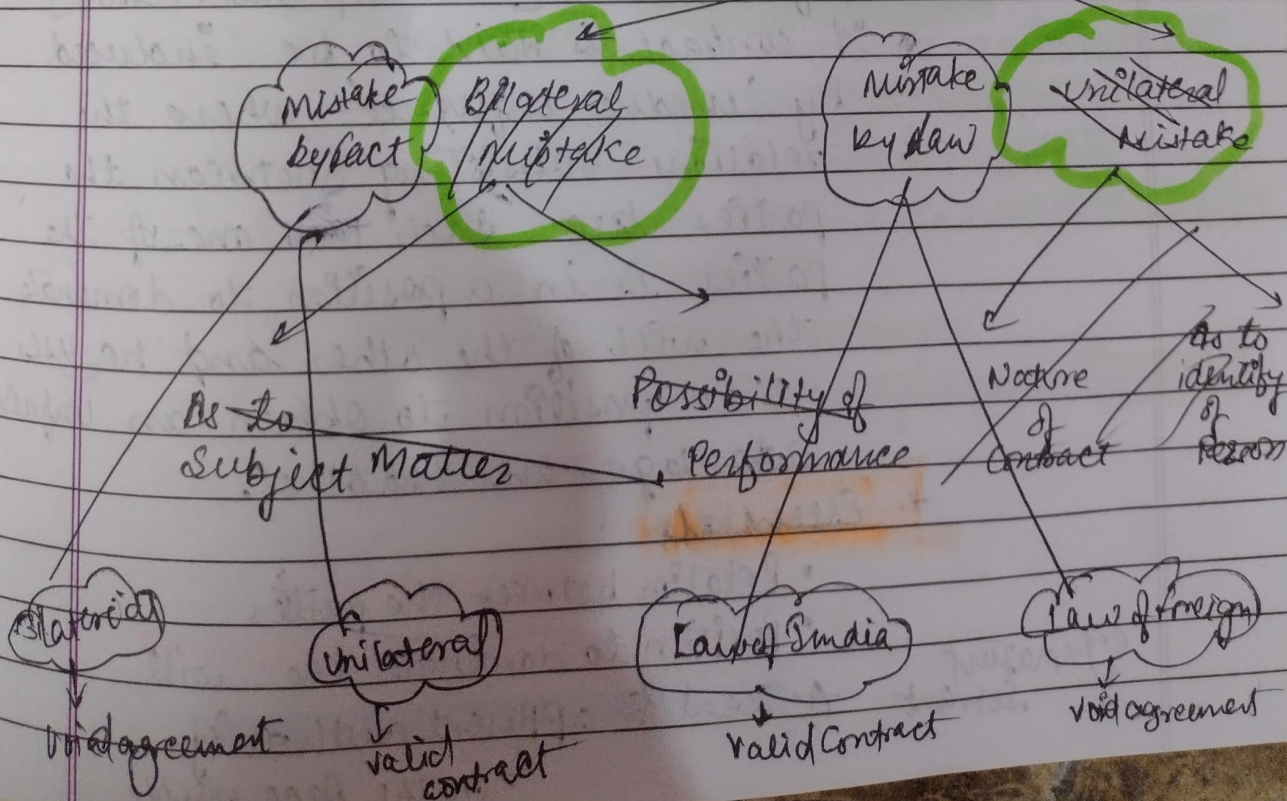 Mistake
by fact
Bilateral
Mistake
Mistake
by Law
Unilateral
Mistake
As to
Subject Matter
Possibility of
Performance
Nature
of
Contract
As to
identity
of
Person
Unilateral
Law of India
Law of foreign
void agreement
valid
contract
valid Contract
void agreement